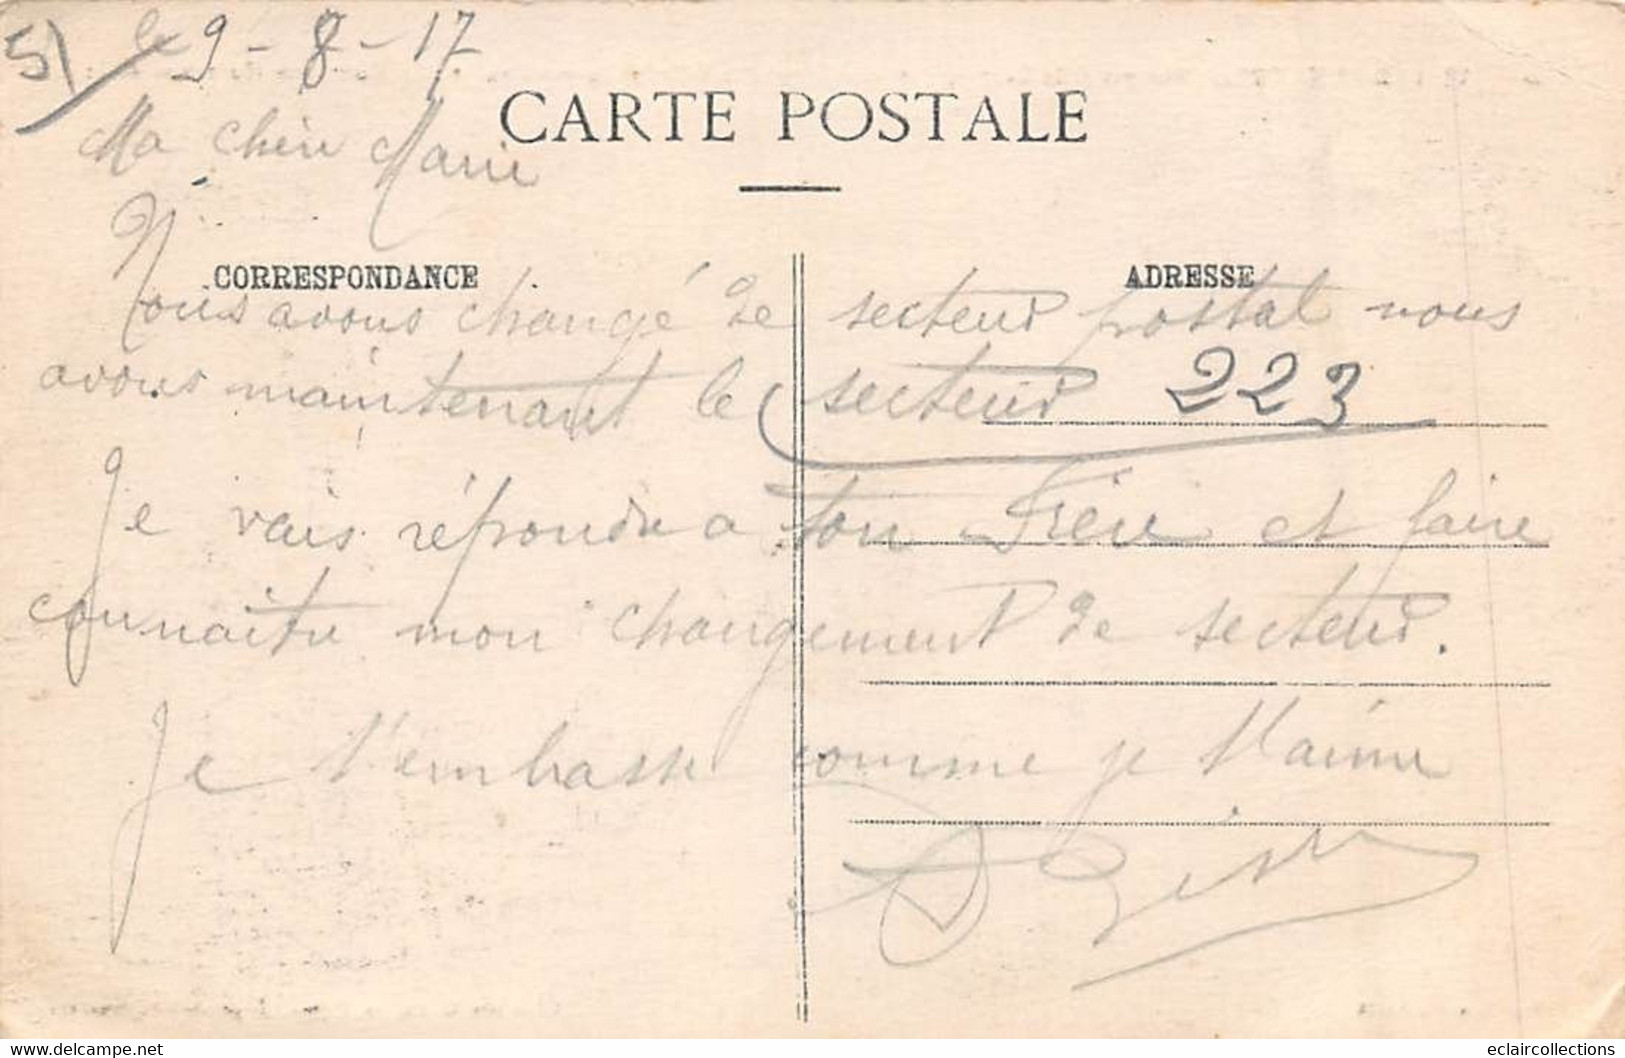 5) le 9 - 8 - 17
CARTE POSTALE
Ma chère Marie
CORRESPONDANCE
ADRESSE
Nous avons changé de secteur postal nous
avons maintenant le secteur 223
Je vais répondre a ton Frère et faire
connaitre mon changement de secteur.
Je t'embrasse comme je t'aime
eclaircollections